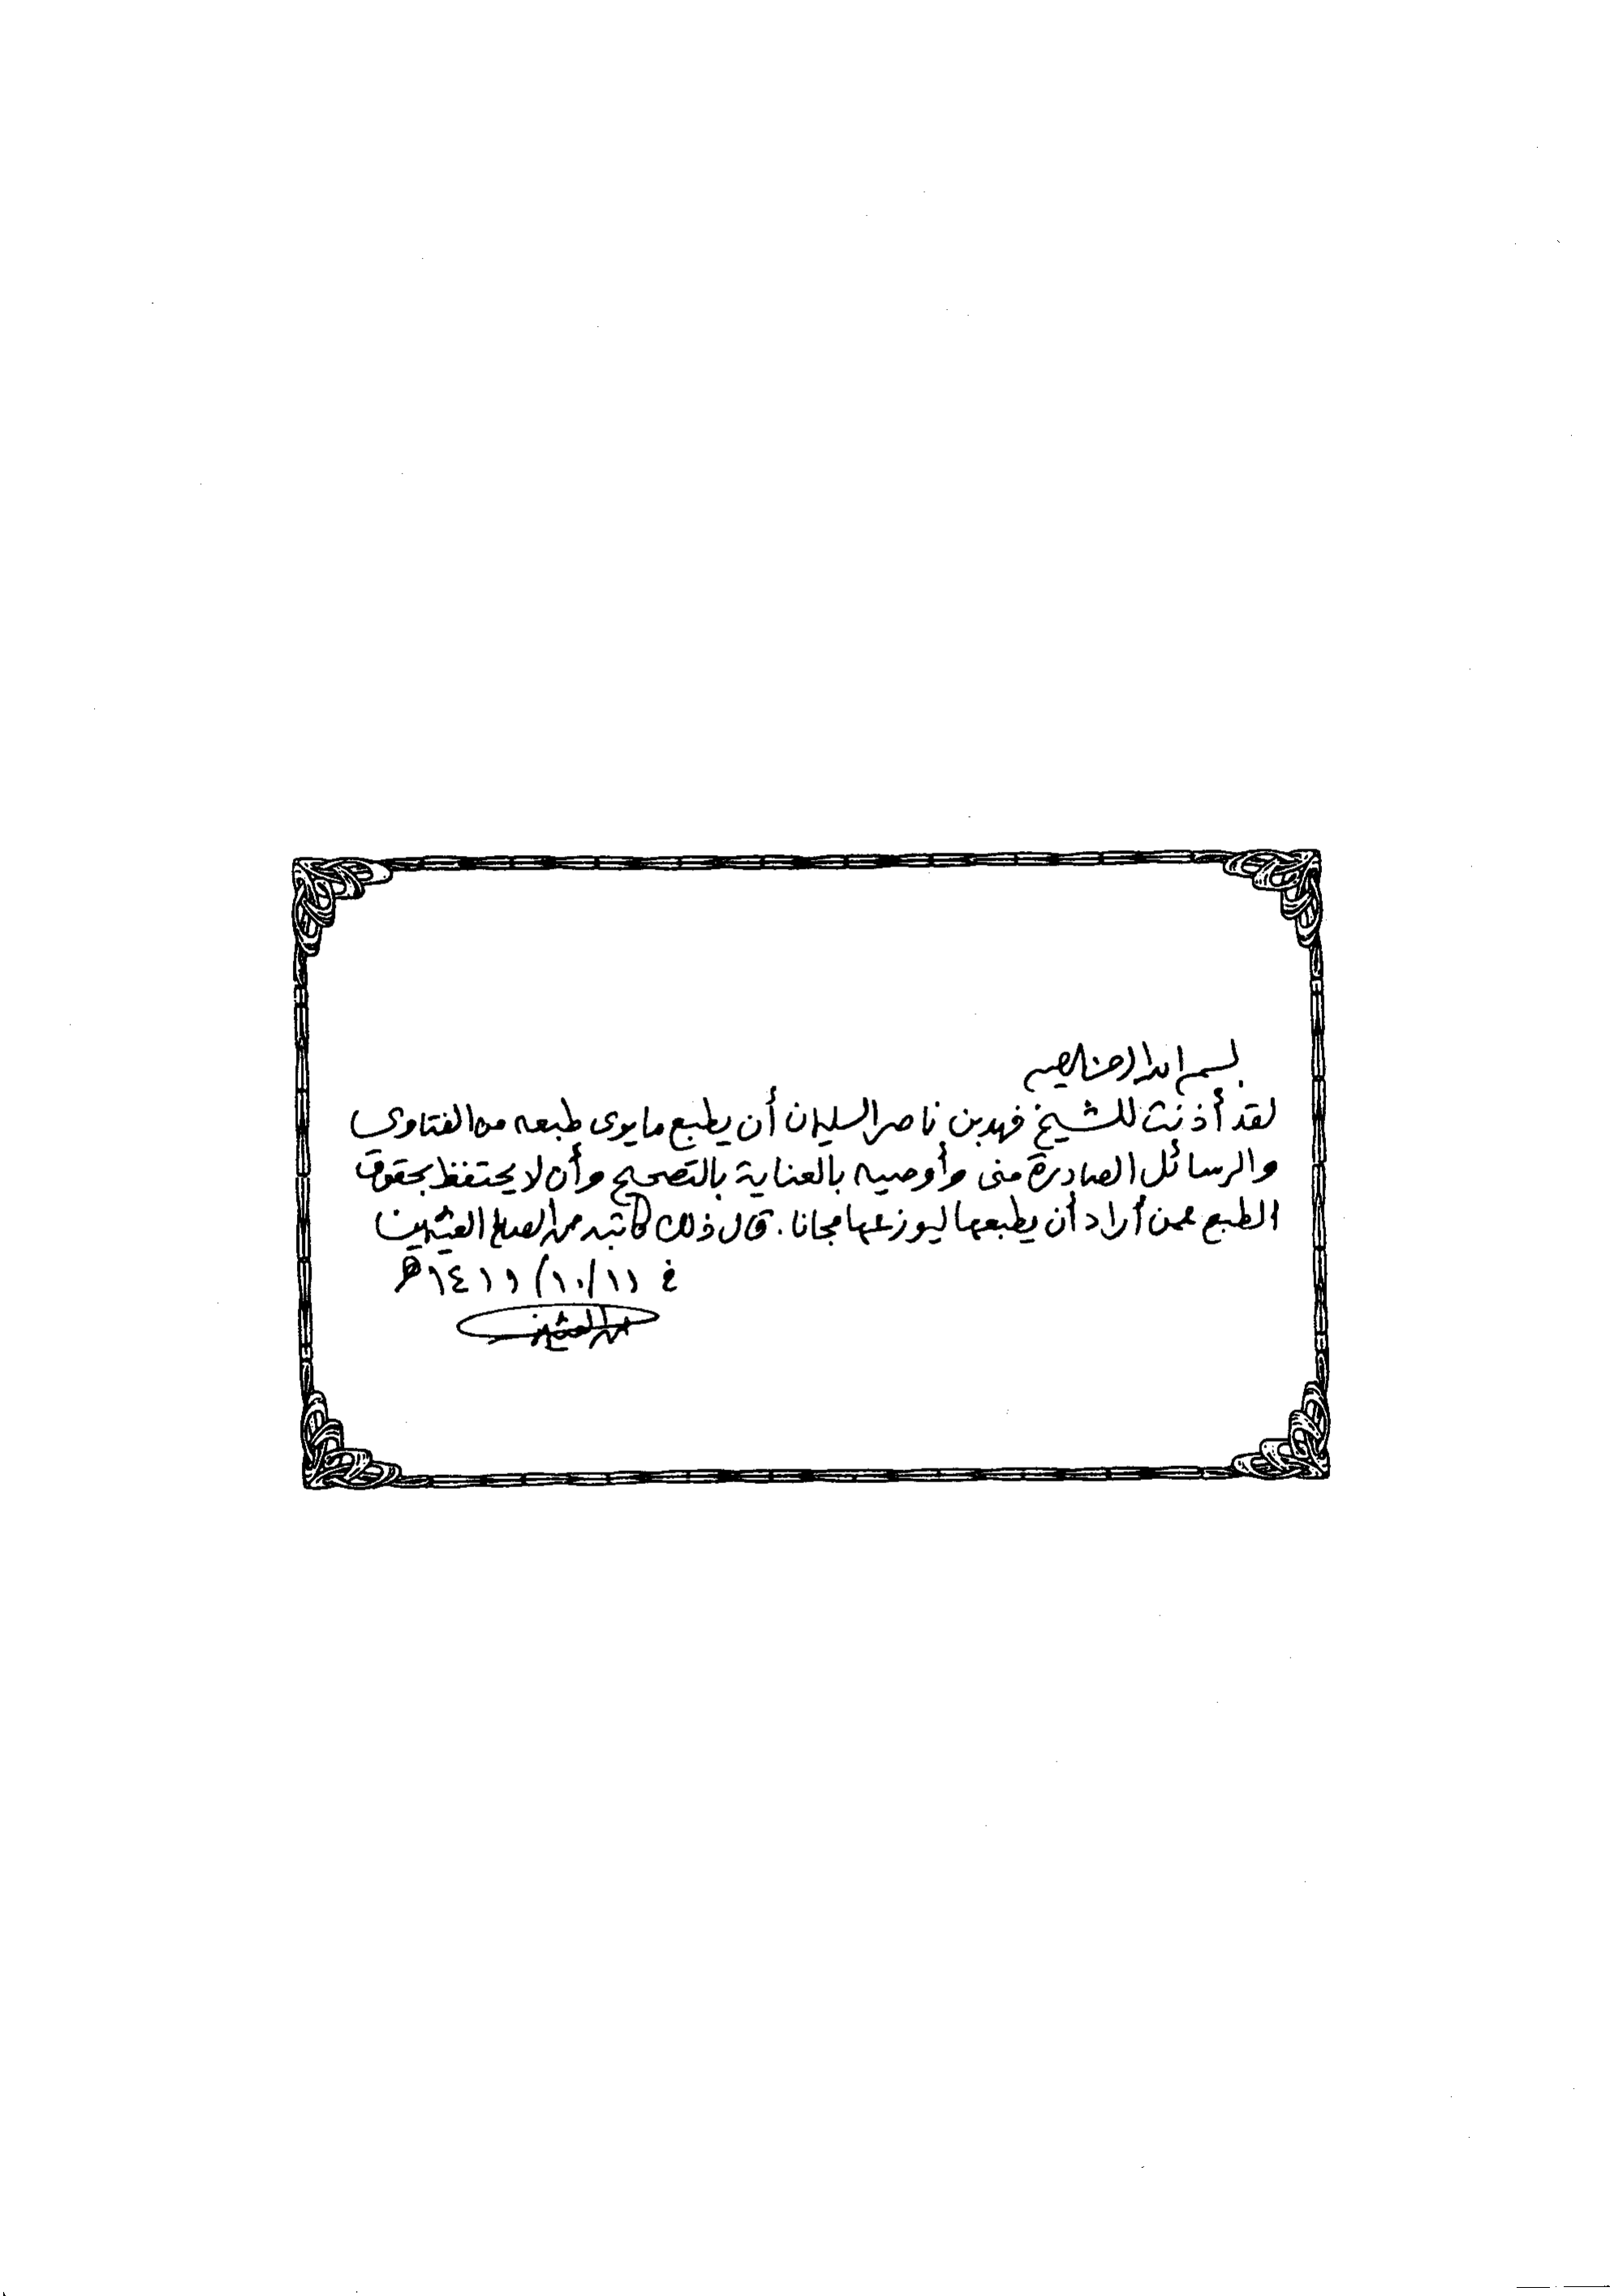 بسم الله الرحمن الرحيم
لقد أذنت للشيخ فهد بن ناصر السليمان أن يطبع ما يرى طبعه من الفتاوى
والرسائل الصادرة منى وأوصيه بالعناية بالتصحيح وأن لا يحتفظ بحقوق
الطبع عمن أراد أن يطبعها ليوزعها مجانا. قال ذلك كاتبه محمد الصالح العثيمين
في ١١/١٠/١٤١١هـ
محمد العثيمين